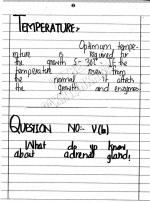 TEMPERATURE:-
Optimum tempe-
rature is required for
the growth 5-30°. If the
temperature rises from
the normal it affects
the growth and enzymes
QUESTION NO:- V(b)
What do yo know
about adrenal gland?